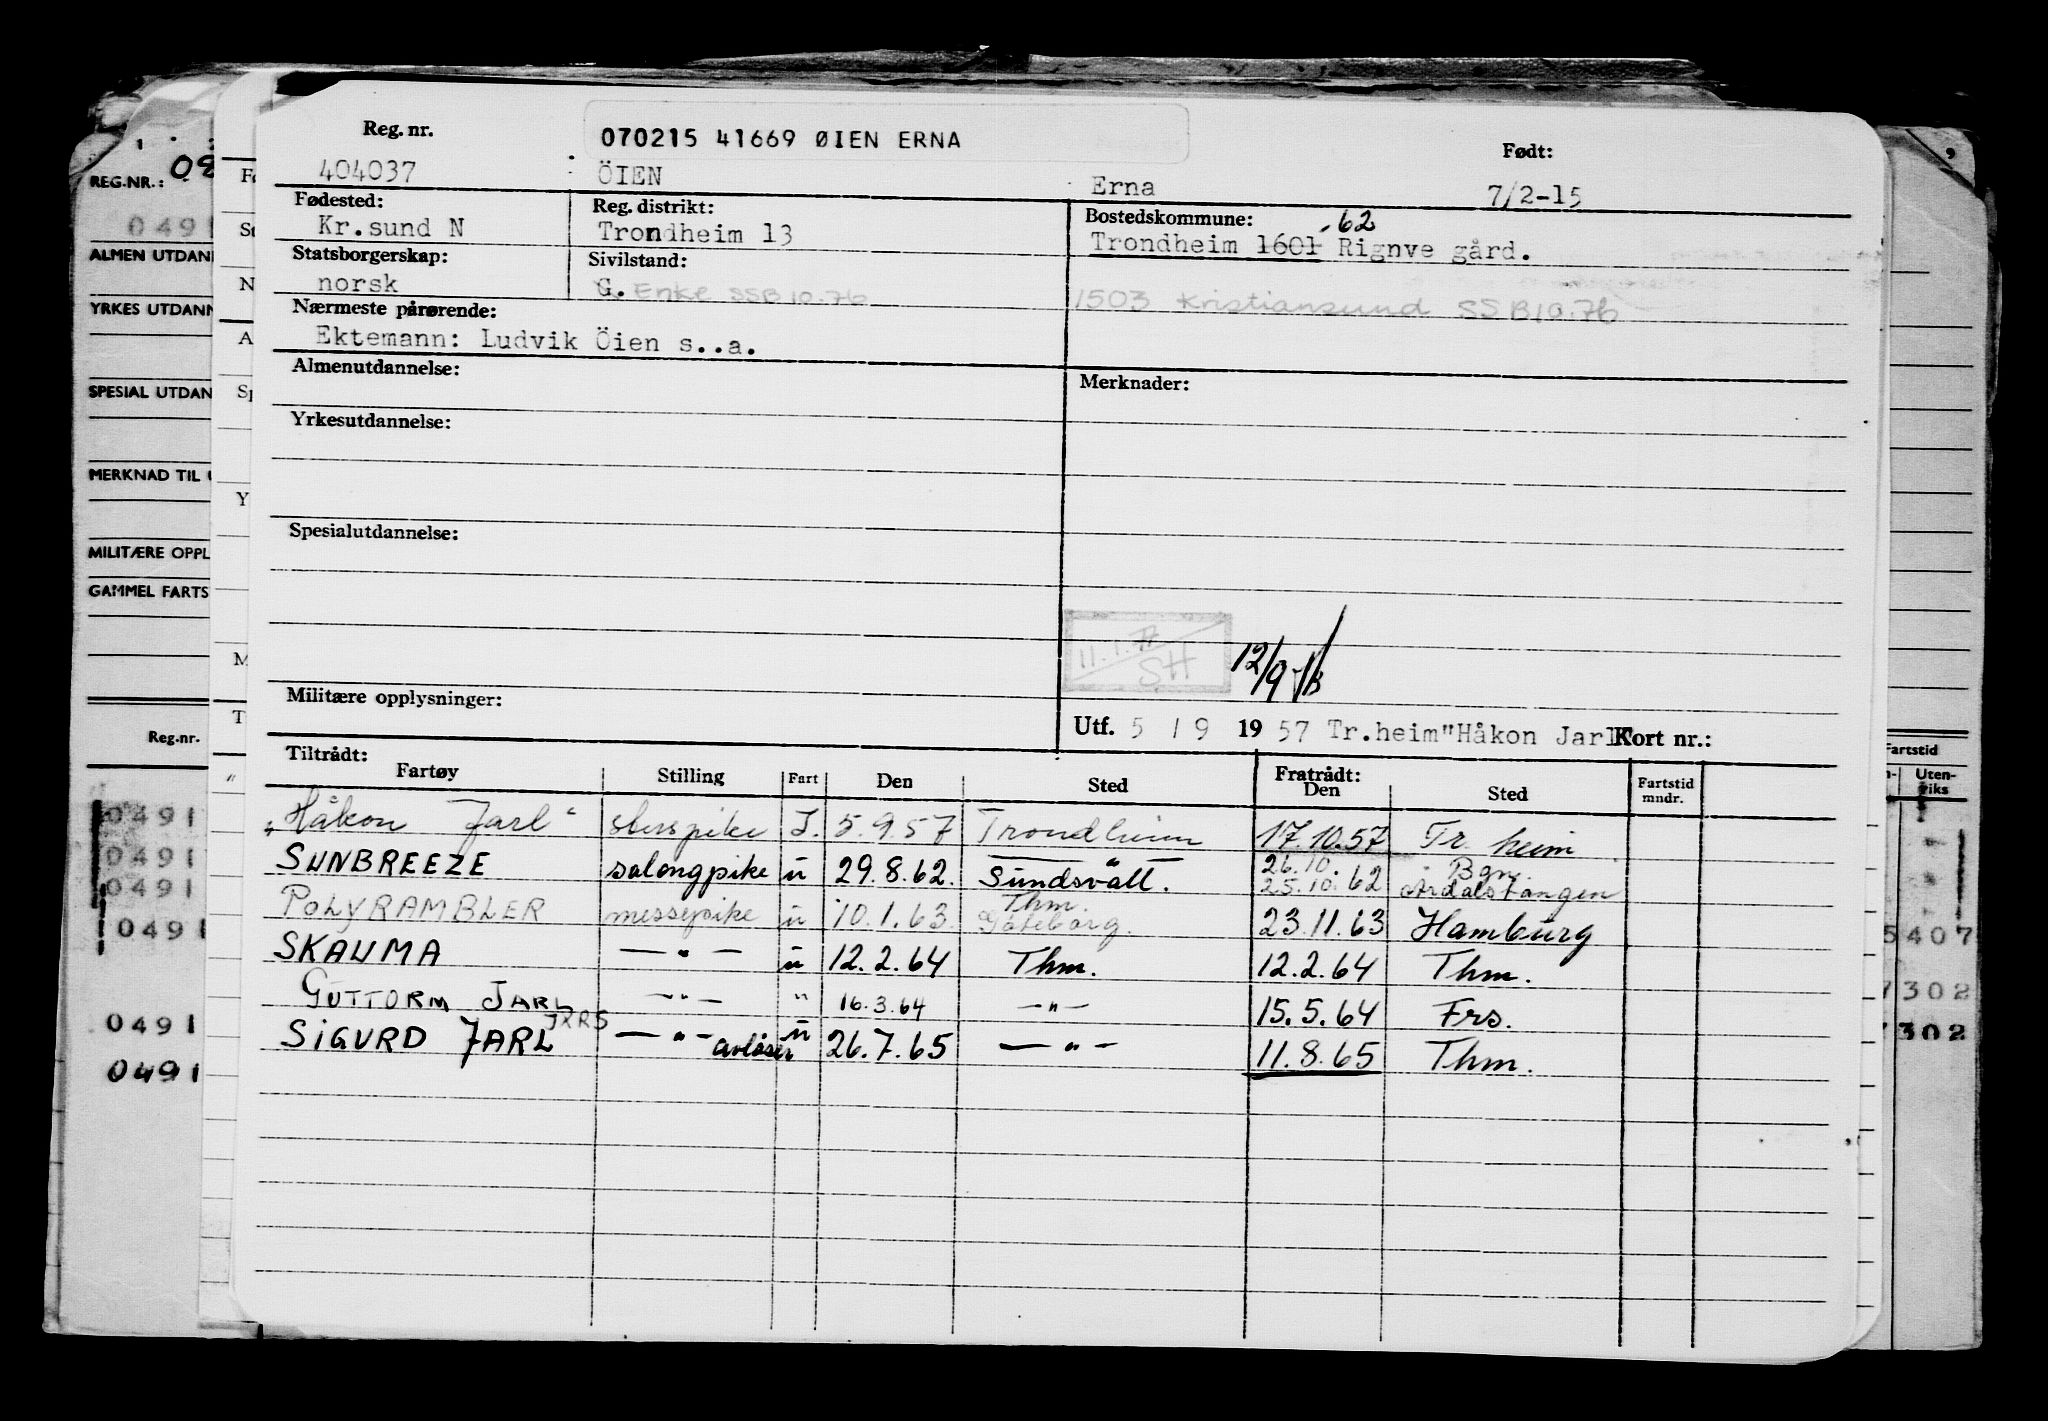 Reg. nr.
070215 41669 ØIEN ERNA
Født:
404037 ÖIEN Erna 7/2-15
Fødested: Reg. distrikt: Bostedskommune: .62
Kr.sund N Trondheim 13 Trondheim 1601 Rignve gård.
Statsborgerskap: Sivilstand:
norsk G. Enke SSB 10.76 1503 Kristiansund SSB 10.76
Nærmeste pårørende:
Ektemann: Ludvik Öien s..a.
Almenutdannelse: Merknader:
Yrkesutdannelse:
Spesialutdannelse:
11.1.77
SH
12/9
Militære opplysninger:
Utf. 5 / 9 1957 Tr.heim "Håkon Jarl" Kort nr.:
Tiltrådt: Fratrådt:
Fartøy Stilling Fart Den Sted Den Sted Fartstid mndr.
"Håkon Jarl" I. 5.9.57 Trondheim 17.10.57 Tr. heim
26.10. Bgn.
SUNBREEZE salongpike u 29.8.62. Sundsvall. 25.10.62 Årdalstangen
Thm.
POLYRAMBLER messepike u 10.1.63. Göteborg. 23.11.63 Hamburg
SKAUMA — " — u 12.2.64 Thm. 12.2.64 Thm.
GUTTORM JARL — " — " 16.3.64 — " — 15.5.64 Frs.
JXRS
SIGURD JARL — " — avløser u 26.7.65 — " — 11.8.65 Thm.
REG.NR.: 08
0491
ALMEN UTDAN
YRKES UTDANN
SPESIAL UTDAN
MERKNAD TIL
MILITÆRE OPPL
GAMMEL FARTS
Reg.nr.
0491
0491
0491
0491
0491
0491
Fartstid
Uten-
riks
5407
7302
7302